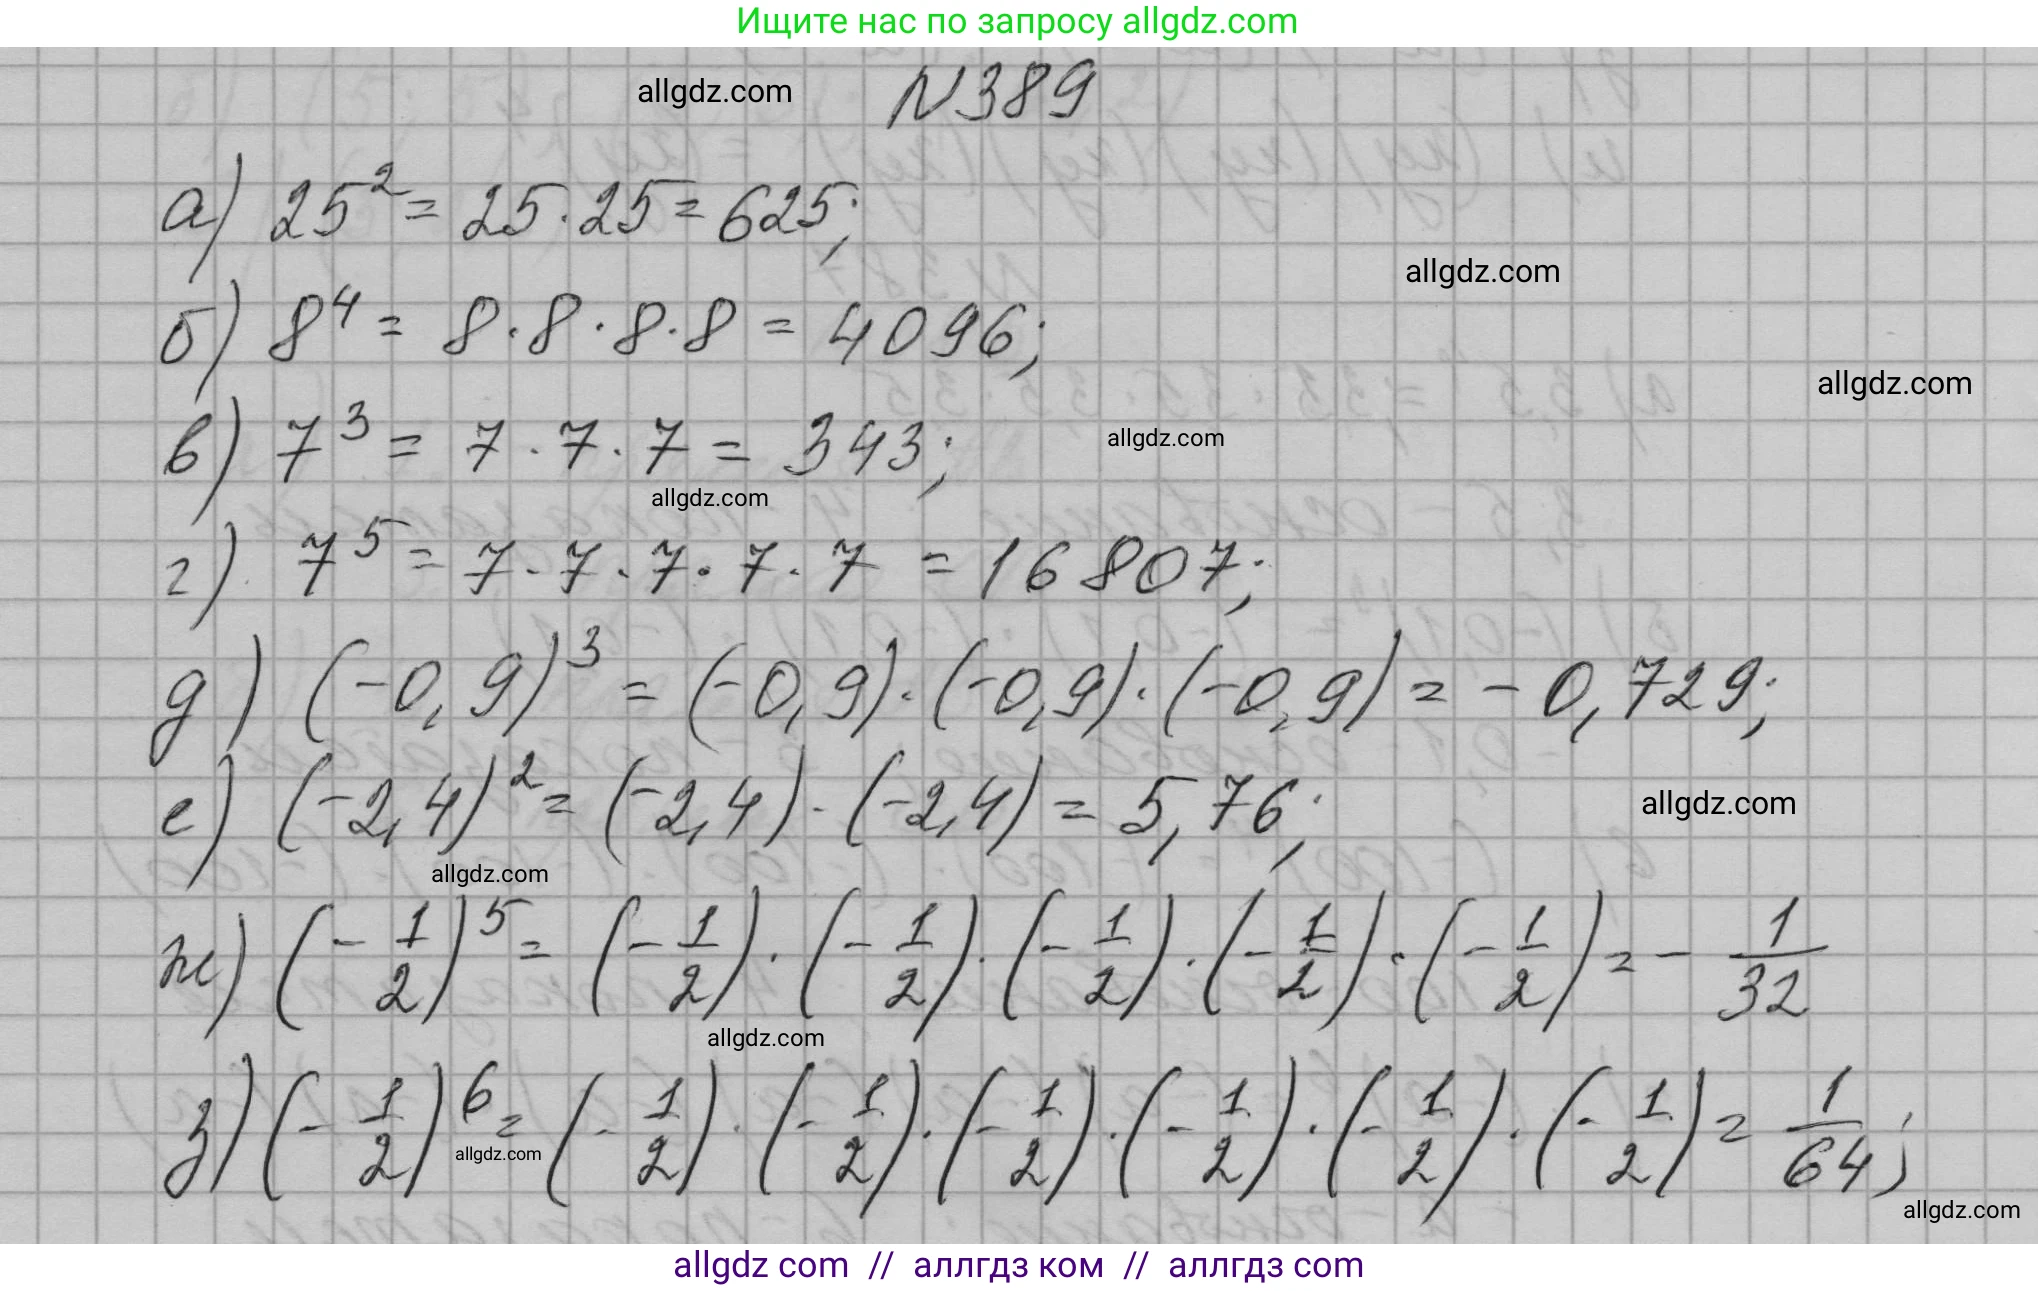 Ищите нас по запросу allgdz.com
allgdz.com
N389
а) 25² = 25·25 = 625;
allgdz.com
б) 8⁴ = 8·8·8·8 = 4096;
allgdz.com
в) 7³ = 7·7·7 = 343;
allgdz.com
allgdz.com
г) 7⁵ = 7·7·7·7·7 = 16807;
д) (-0,9)³ = (-0,9)·(-0,9)·(-0,9) = -0,729;
е) (-2,4)² = (-2,4)·(-2,4) = 5,76;
allgdz.com
allgdz.com
ж) (-1/2)⁵ = (-1/2)·(-1/2)·(-1/2)·(-1/2)·(-1/2) = -1/32
allgdz.com
з) (-1/2)⁶ = (-1/2)·(-1/2)·(-1/2)·(-1/2)·(-1/2)·(-1/2) = 1/64;
allgdz.com
allgdz.com
allgdz com // аллгдз ком // аллгдз com